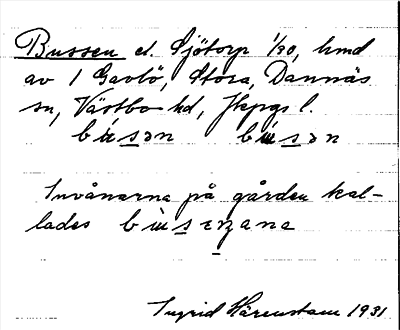 Bussen el. Sjötorp 1/30, hmd
av 1 Gavlö, Stora, Dannäs
sn, Västbo hd, Jkpgs l.
bu̇sən bu̇sən
Invånarna på gården kal-
lades bu̇sɛŋana
Ingrid Härenstam 1931